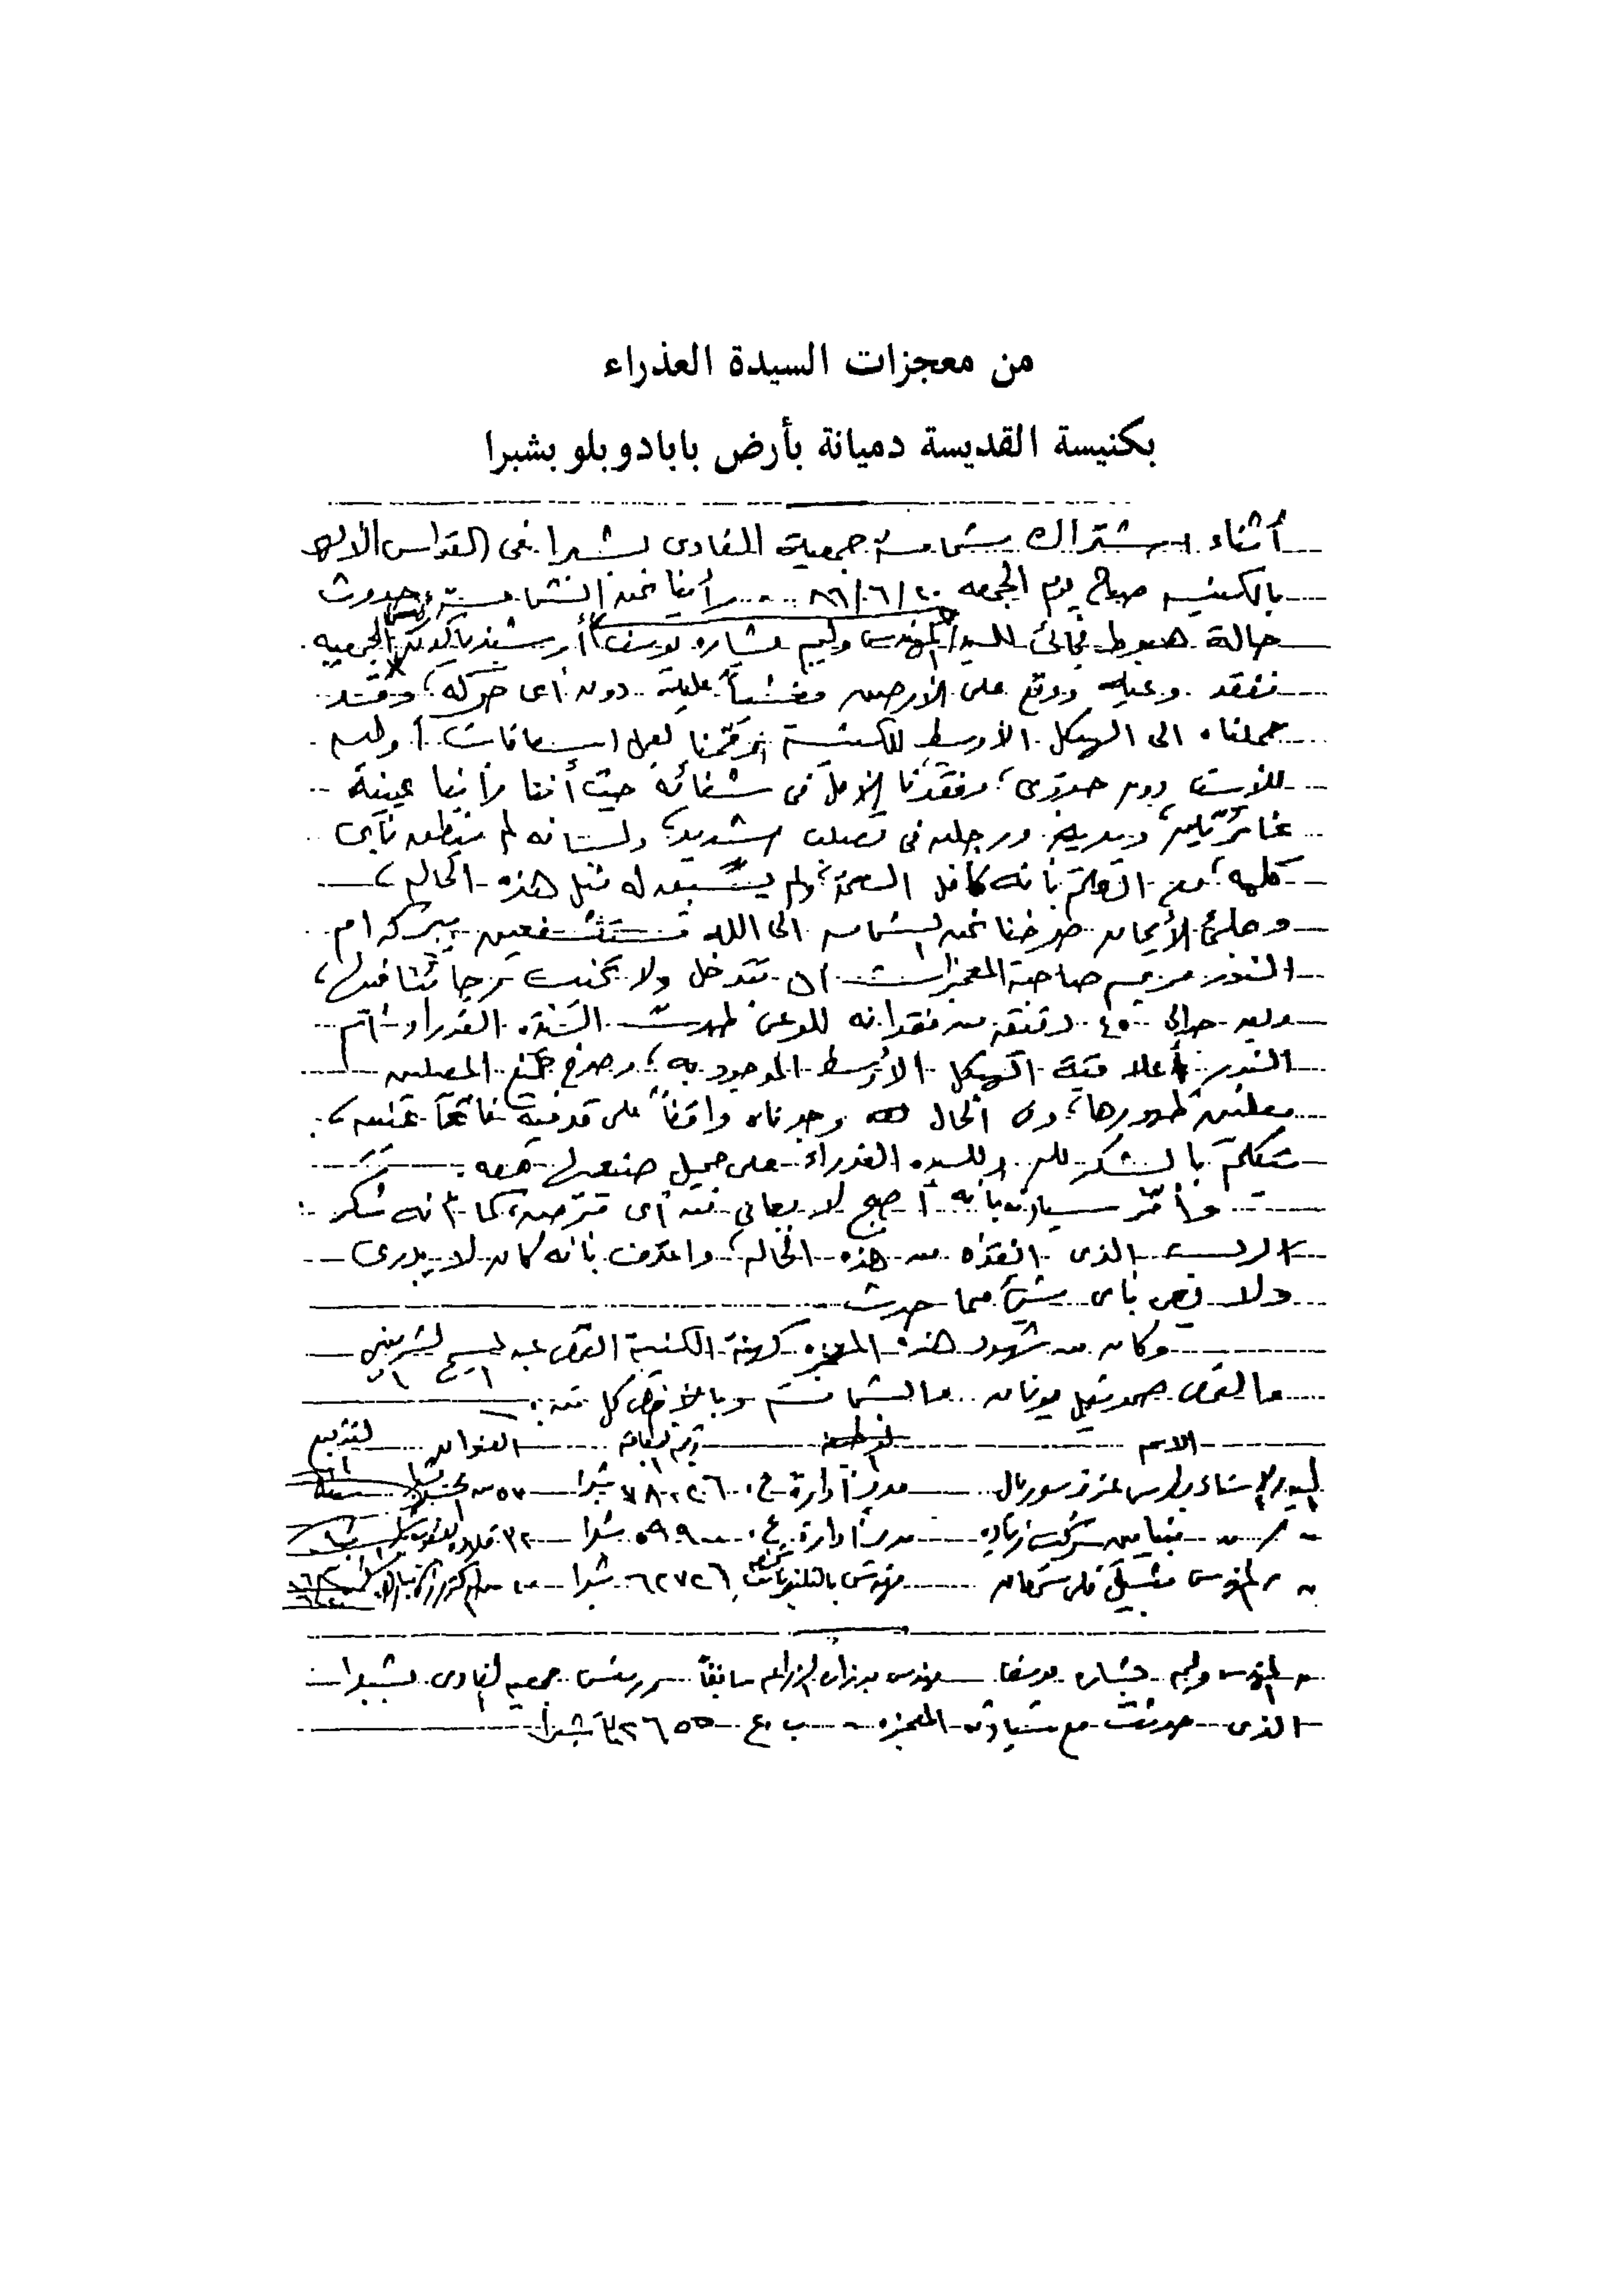 من معجزات السيدة العذراء
بكنيسة القديسة دميانة بأرض بابادوبلو بشبرا
أثناء اشتراك شمامسة جمعية الفادى بشبرا فى القداس الإلهى
بالكنيسه صباح يوم الجمعه ٢٠/٦/٨٦ .... رأينا نحن الشمامسة حدوث
حالة هبوط فجائى للسيد المهندس وليم بشاره يوسف أرشيدياكون الجمعيه
ففقد وعيه ووقع على الأرض مغشياً عليه دون أى حركه، وقد
حملناه الى الهيكل الأوسط للكنيسة وقمنا لعمل اسعافات أوليه
للأسف دون جدوى، وفقدنا الأمل فى شفائه حيث أننا رأينا عينيه
غائرتين، ويديه ورجليه فى تصلب شديد، ولسانه لم ينطق بأى
كلمه، مع العلم بأنه كامل الصحة، ولم يسبق له مثل هذه الحاله،
وبملئ الأيمان صرخنا نحن الشمامسه الى الله مستشفعين ببركه ام
النور مريم صاحبة المعجزات ان تتدخل ولا تخيب رجائنا فيها،
وبعد حوالى ٤٥ دقيقه من فقدانه للوعى ظهرت السيده العذراء ام
النور أعلا قبة الهيكل الأوسط الموجود به، وصرخ جميع المصلين
معلنين ظهورها، وفى الحال وجدناه واقفاً على قدميه فاتحاً عينيه،
متكلم بالشكر لله وللسيده العذراء على جميل صنعها معه .
وأقر سيادته بأنه أصبح لا يعانى من أى مرض، كما أنه شكر
الرب الذى انقذه من هذه الحاله، واعترف بأنه كان لا يدرى
ولا يحس بأى شئ مما حدث
وكان من شهود هذه المعجزه كهنة الكنيسة القمص عبد المسيح الشربينى
والقمص صموئيل يونان والشمامسه وبالأخص كل من :
الاسم الوظيفة رقم البطاقة العنوان التوقيع
السيد الاستاذ بطرس عزيز سوريال مدير ادارة ع. ٧٨٠٢٦ شبرا ٥٧ ش
بنيامين شوكت زياده مدير ادارة ع. شبرا ٣٢
المهندس مهندس بالتليفونات ٦٢٧٢٦ شبرا
المهندس وليم بشاره يوسف مهندس بوزارة الزراعه سابقاً ورئيس جمعية الفادى بشبرا
الذى حدثت مع سيادته المعجزه ب.ع شبرا